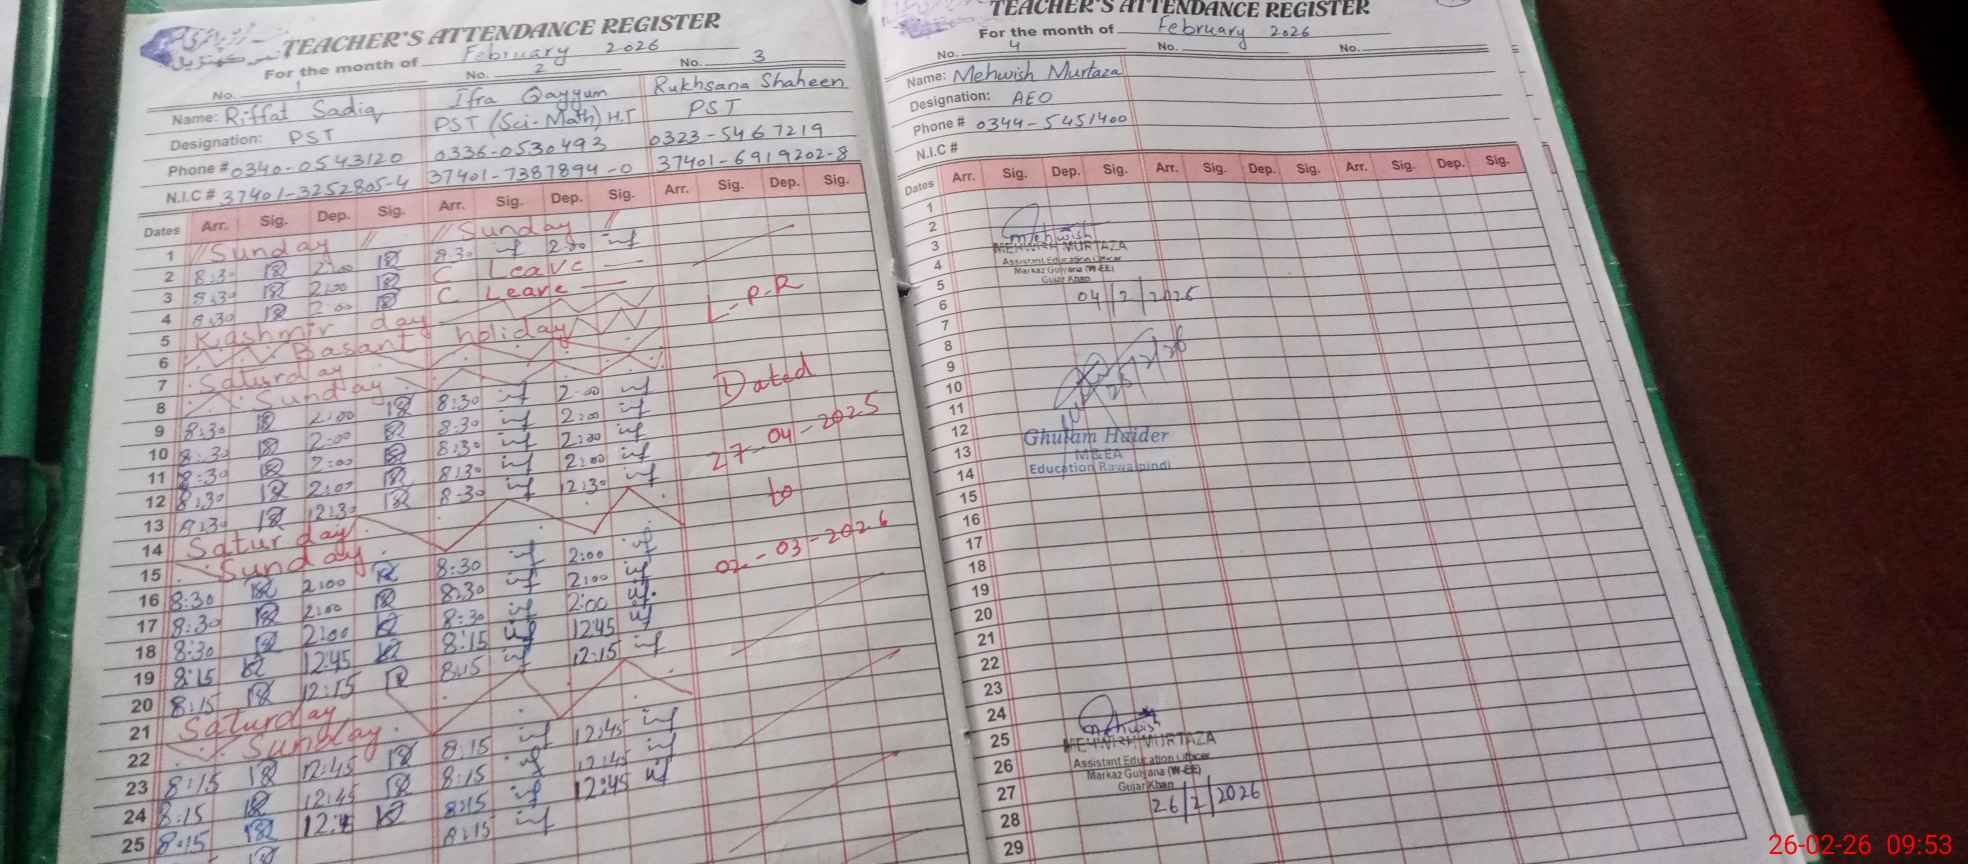 TEACHER'S ATTENDANCE REGISTER
For the month of February 2026
No. 1 No. 2 No. 3
Name: Riffat Sadiq Ifra Qayyum Rukhsana Shaheen
Designation: PST PST (Sci-Math) H.T PST
Phone # 0340-0543120 0336-0530493 0323-5467219
N.I.C # 37401-3252805-4 37401-7387894-0 37401-6919202-8
Dates Arr. Sig. Dep. Sig. Arr. Sig. Dep. Sig. Arr. Sig. Dep. Sig.
1 Sunday Sunday
2 8:30 2:00 8:30 2:00
3 8:30 2:00 C Leave
4 8:30 2:00 C Leave
5 Kashmir day
6 Basant holiday
7 Saturday
8 Sunday
9 8:30 2:00 8:30 2:00
10 8:30 2:00 8:30 2:00
11 8:30 2:00 8:30 2:00
12 8:30 2:00 8:30 2:00
13 8:30 12:30 8:30 12:30
14 Saturday
15 Sunday
16 8:30 2:00 8:30 2:00
17 8:30 2:00 8:30 2:00
18 8:30 2:00 8:30 2:00
19 8:15 12:45 8:15 12:45
20 8:15 12:15 8:15 12:15
21 Saturday
22 Sunday
23 8:15 12:45 8:15 12:45
24 8:15 12:45 8:15 12:45
25 8:15 8:15 12:45
8:15
L-P-R
Dated
27-04-2025
to
02-03-2026
TEACHER'S ATTENDANCE REGISTER
For the month of February 2026
No. 4 No. No.
Name: Mehwish Murtaza
Designation: AEO
Phone # 0344-5451400
N.I.C #
Dates Arr. Sig. Dep. Sig. Arr. Sig. Dep. Sig. Arr. Sig. Dep. Sig.
1
2
3
4
5
6
7
8
9
10
11
12
13
14
15
16
17
18
19
20
21
22
23
24
25
26
27
28
29
Mehwish
MEHWISH MURTAZA
Assistant Education Officer
Markaz Gulyana (W-EE)
Gujar Khan
04/2/2026
Ghulam Haider
M&EA
Education Rawalpindi
Mehwish
MEHWISH MURTAZA
Assistant Education Officer
Markaz Gulyana (W-EE)
Gujar Khan
26/2/2026
26-02-26 09:53